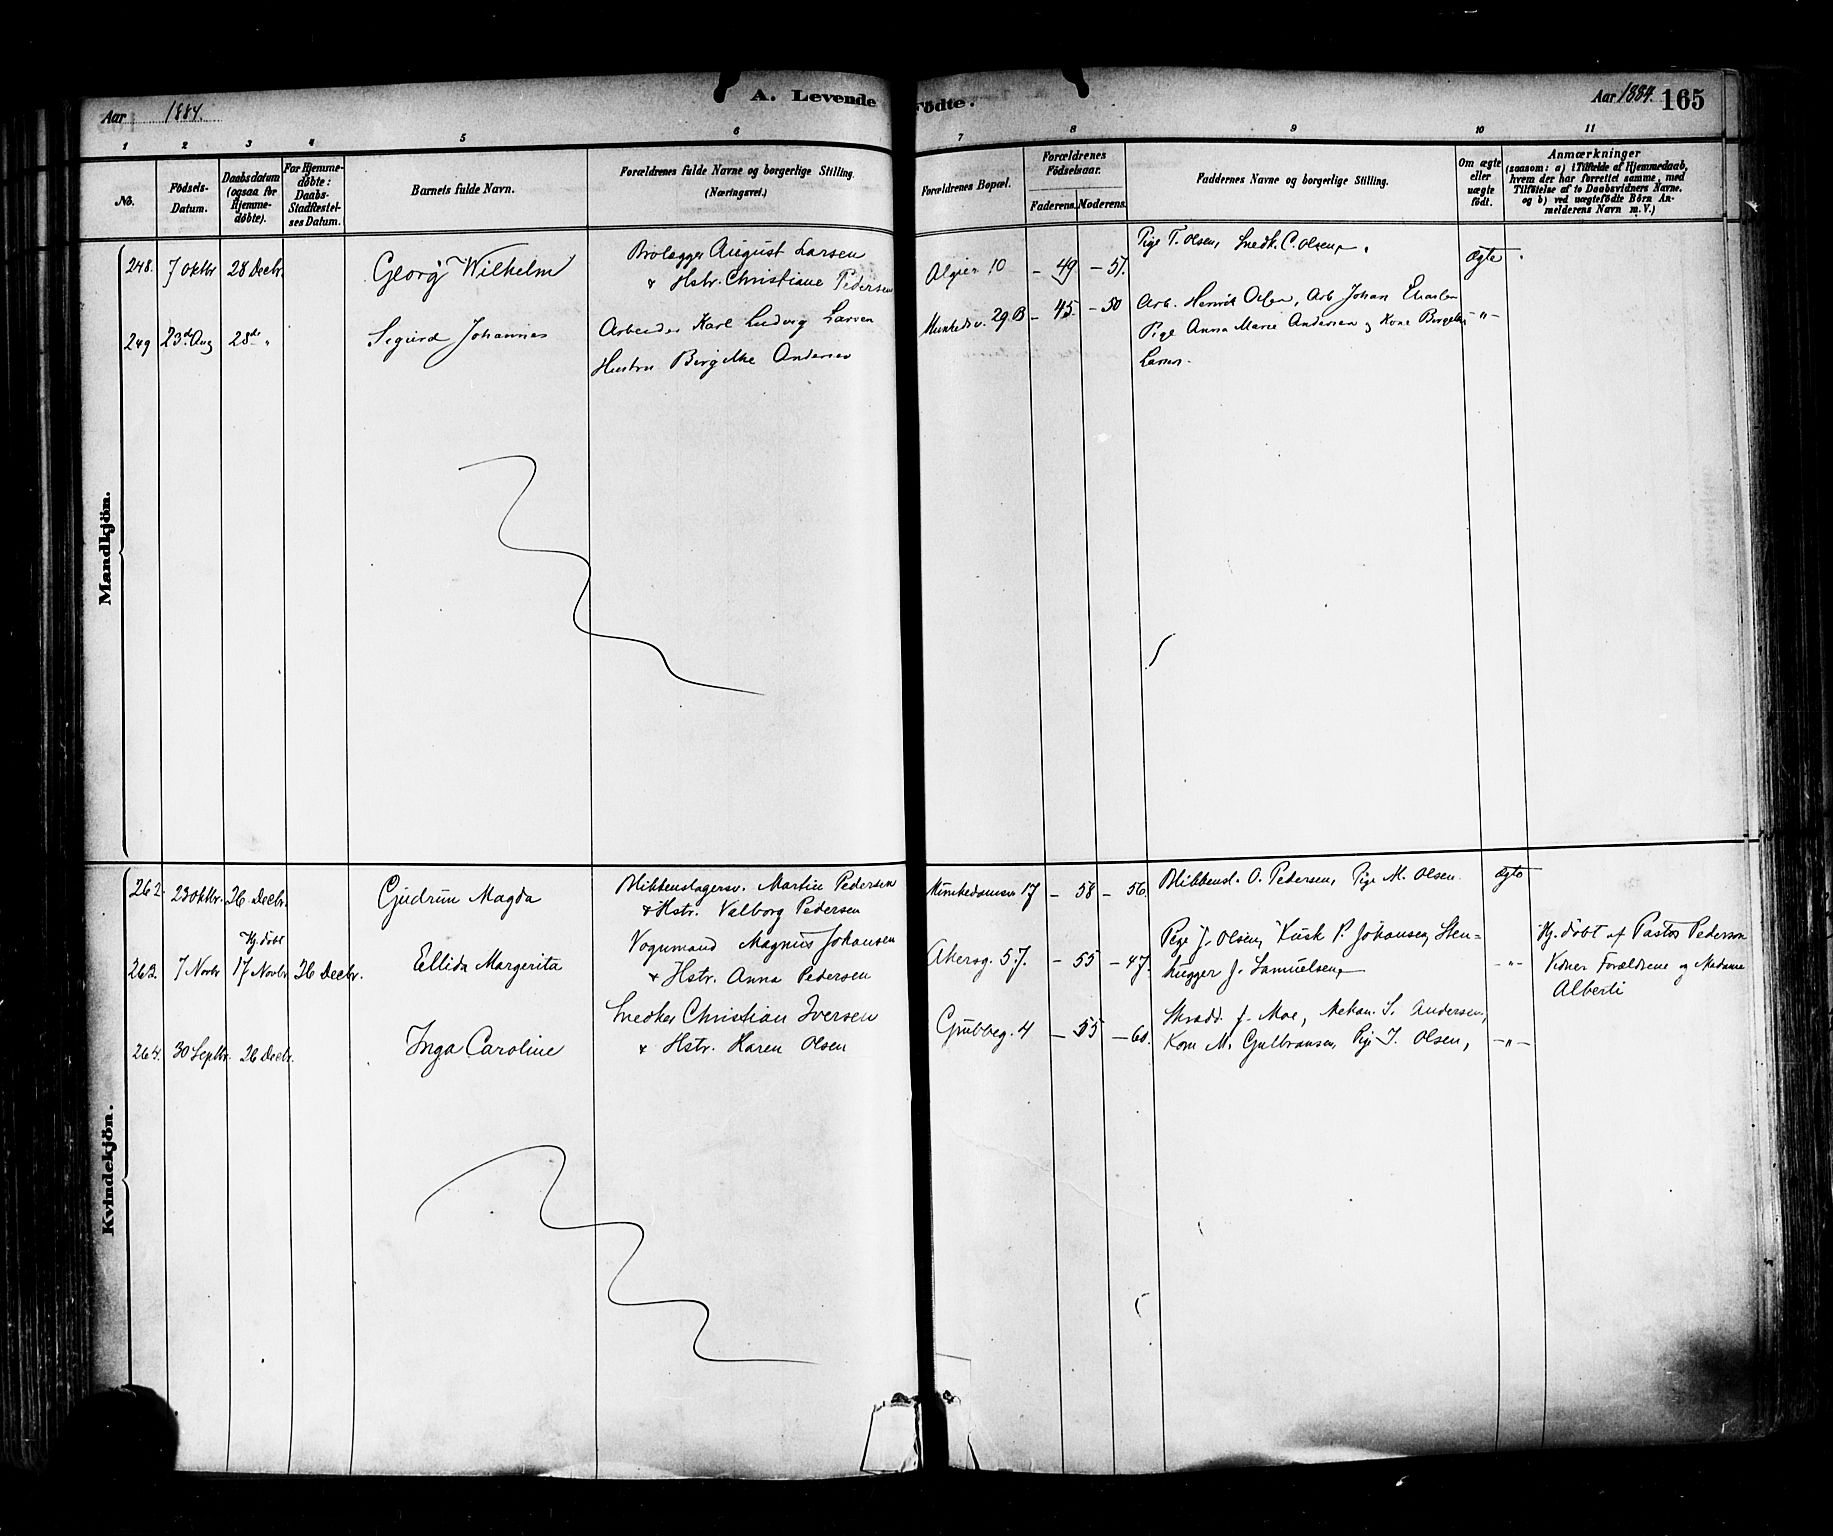 Aar 1884.
A. Levende Födte.
Aar 1884. 165
1 2 3 4 5 6 7 8 9 10 11
No.
Födsels-Datum.
Daabsdatum (ogsaa for Hjemme-döbte).
For Hjemme-döbte: Daabs-Stadfæstel-ses Datum.
Barnets fulde Navn.
Forældrenes fulde Navne og borgerlige Stilling.
(Næringsvei.)
Forældrenes Bopæl.
Forældrenes Födselsaar.
Faderens. Moderens.
Faddernes Navne og borgerlige Stilling.
Om ægte eller uægte födt.
Anmærkninger
(saasom: a) i Tilfælde af Hjemmedaab,
hvem der har forrettet samme, med
Tilföielse af to Daabsvidners Navne.
og b) ved uægtefödte Börn An-
melderens Navn m. V.)
Mandkjön.
248. 7 Oktbr 28 Decbr. Georg Wilhelm
Brolægger August Larsen
& Hstr. Christiane Pedersen
Algier 10 - 49 - 57.
Pige T. Olsen, Snedk. C. Olsen,
Ægte
249 23de Aug 28de " Sigurd Johannes
Arbeider Karl Ludvig Larsen
Hustru Birgithe Andersen
Munkedv. 29 B - 45 - 50
Arb. Henrik Olsen, Arb Johan
Pige Anna Marie Andersen og Kone
Larsen.
-"-
Kvindekjön.
262. 23 Oktbr. 26 Decbr. Gudrun Magda
Blikkenslagersv. Martin Pedersen
& Hstr. Valborg Pedersen
Munkedamsv. 17 - 58 - 56.
Blikkensl. O. Pedersen, Pige M. Olsen.
Ægte
263. 7 Novbr Hj. döbt 17 Novbr 26 Decbr. Ellida Margerita
Vognmand Magnus Johansen
& Hstr. Anna Pedersen
Akersg. 57. - 55 - 47.
Pige J. Olsen, Kusk P. Johansen, Sten-
hugger J. Samuelsen,
-"-
Hj. döbt af Pastor Pedersen
Vidner Forældrene og Madame
Alberti
264. 30 Septbr. 26 Decbr. Inga Caroline
Snedker Christian Iversen
& Hstr. Karen Olsen
Grubbeg. 4 - 55 - 60.
Skradd. J. Moe, Mekan. S. Andersen,
Kone M. Gulbransen, Pige J. Olsen,
-"-